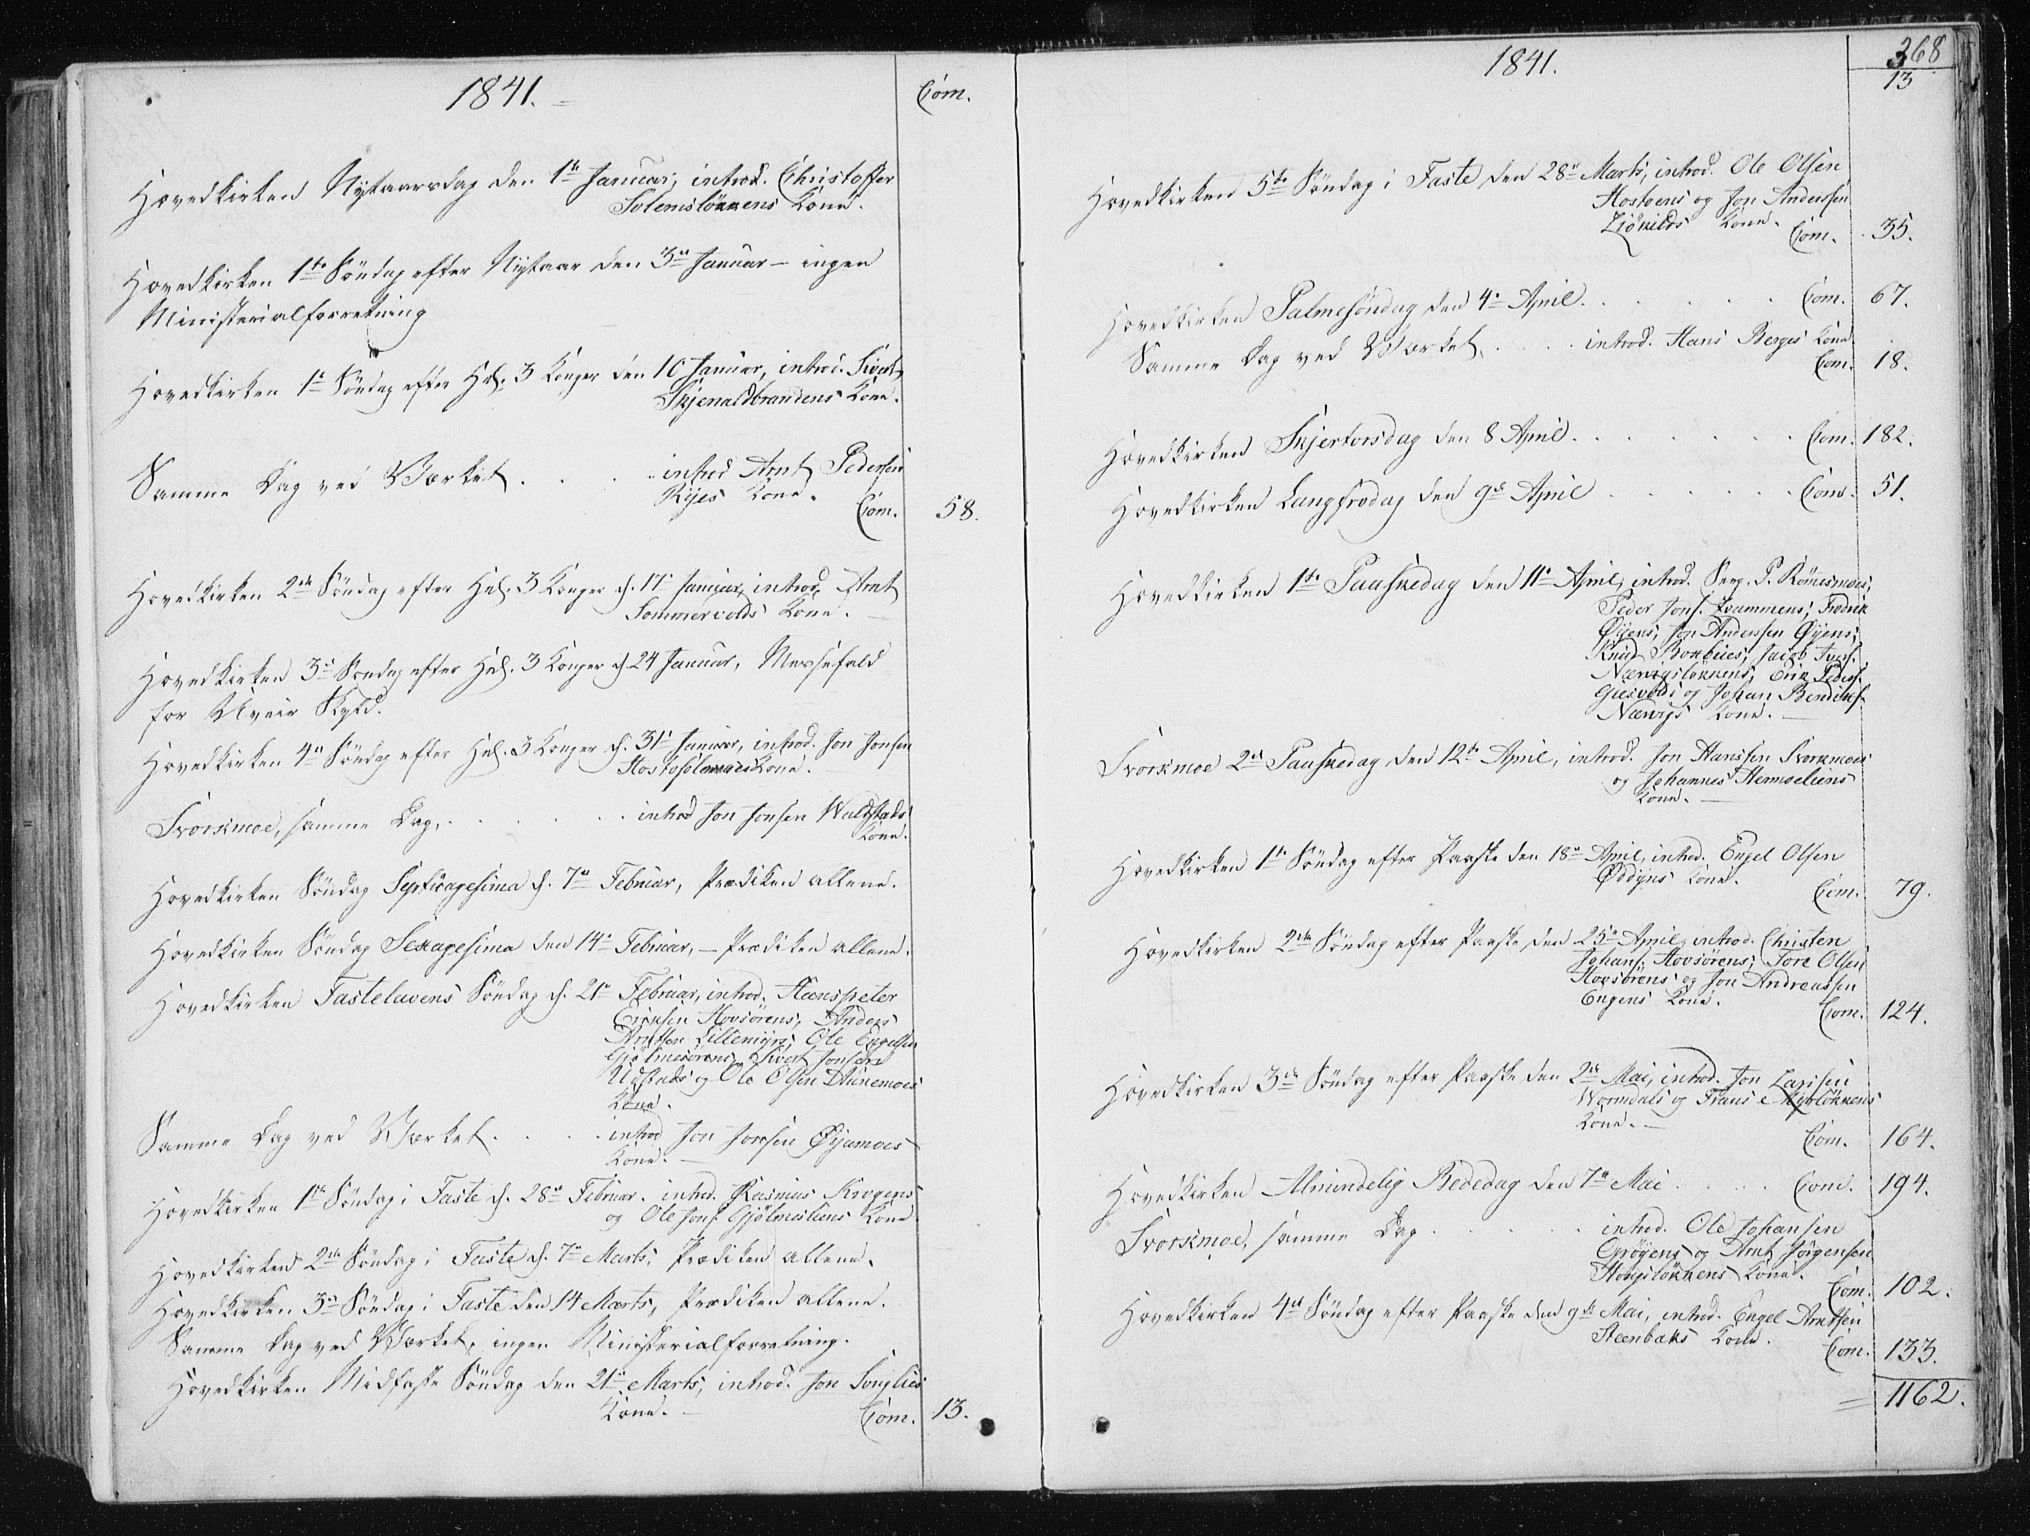 1841.
Com.
Hovedkirken Nytaarsdag den 1ste Januar, introd. Christoffer
Solemsløkkens Kone.
Hovedkirken 1ste Söndag efter Nytaar den 3die Januar – ingen
Ministerialforretning
Hovedkirken 1ste Söndag efter Hel. 3 Konger den 10 Januar, introd. Sivert
Skjenaldbrandens Kone.
Samme Dag ved Værket . . . introd Arnt Pedersen
Ryes Kone.
Com. 58.
Hovedkirken 2den Söndag efter Hel. 3 Konger d. 17 Januar, introd. Arnt
Sommervolds Kone. –
Hovedkirken 3die Söndag efter Hel. 3 Konger d. 24 Januar, Messefald
for Uveir Skyld.
Hovedkirken 4de Söndag efter Hel. 3 Konger d. 31 Januar, introd. Jon Jonsen
Kone. –
Svorkmoe, samme Dag, . . . . . . introd Jon Jonsen Wuldstads
Kone.
Hovedkirken Söndag Septuagesima d. 7de Februar, Prædiken allene.
Hovedkirken Söndag Sexagesima den 14de Februar, – Prædiken allene.
Hovedkirken Fastelavens Söndag d. 21de Februar, introd. Hanspeter
Erixsen Hovsørens, Anders
Arntsen Lillemyrs, Ole Engelsen
Gjølmesørens, Sivert Jonsen
Udstads og Ole Olsen
Kone.
Samme Dag ved Værket . . . . introd Jon Jonsen Øyumoes
Kone. –
Hovedkirken 1ste Söndag i Faste d. 28de Februar. introd. Rasmus Krogens
og Ole Jons. Gjølmesliens Kone
Hovedkirken 2den Söndag i Faste d. 7de Marts, Prædiken allene.
Hovedkirken 3die Söndag i Faste den 14 Marts, Prædiken allene.
Samme Dag ved Værket, ingen Ministerialforretning.
Hovedkirken Midfaste Söndag den 21de Marts, introd. Jon Songlies
Kone. –
Com. 13.
1841.
368
13
Hovedkirken 5te Söndag i Faste den 28de Marts, introd. Ole Olsen
Hostoens og Jon Anderssen
Kone.
Com. 35.
Hovedkirken Palmesøndag den 4de April . . . . . . Com. 67.
Samme Dag ved Værket, . . . . introd. Hans Berges Kone
Com. 18.
Hovedkirken Skjertorsdag den 8 April . . . . . . . Com. 182.
Hovedkirken Langfredag den 9de April . . . . . . Com. 51.
Hovedkirken 1ste Paaskedag den 11te April, introd. Serg. P. Rønesmoes,
Peder Jons. Fredrik
Øyens, Jon Anderssen Øyens,
Knud Jacob Jons.
Nærvigsløkkens, Erik Peders.
Giesvolds og Johan Bendiks.
Nærvigs Kone. –
Svorkmoe 2den Paaskedag, den 12te April, introd. Jon Hanssen Svorkmoes
og Johannes Hermoeliens
Kone. –
Hovedkirken 1ste Söndag efter Paaske den 18de April, introd. Engel Olsen
Kone.
Com. 79.
Hovedkirken 2den Söndag efter Paaske, den 25de April, introd. Christen
Johans. Hovsørens, Tore Olsen
Hovsørens og Jon Andreassen
Engens Kone.
Com. 124.
Hovedkirken 3die Söndag efter Paaske den 2den Mai, introd. Jon Larssen
Wormdals og Frans Myrløkkens
Kone. –
Com. 164.
Hovedkirken Almindelig Bededag den 7de Mai . . . . Com. 194.
Svorkmoe, samme Dag . . . . . . introd. Ole Johansen
Grøyens og Arnt Jørgensen
Hougsløkkens Kone.
Com. 102.
Hovedkirken 4de Söndag efter Paaske den 9de Mai, introd. Engel Arntsen
Steenbaks Kone.
Com. 133.
= 1162.